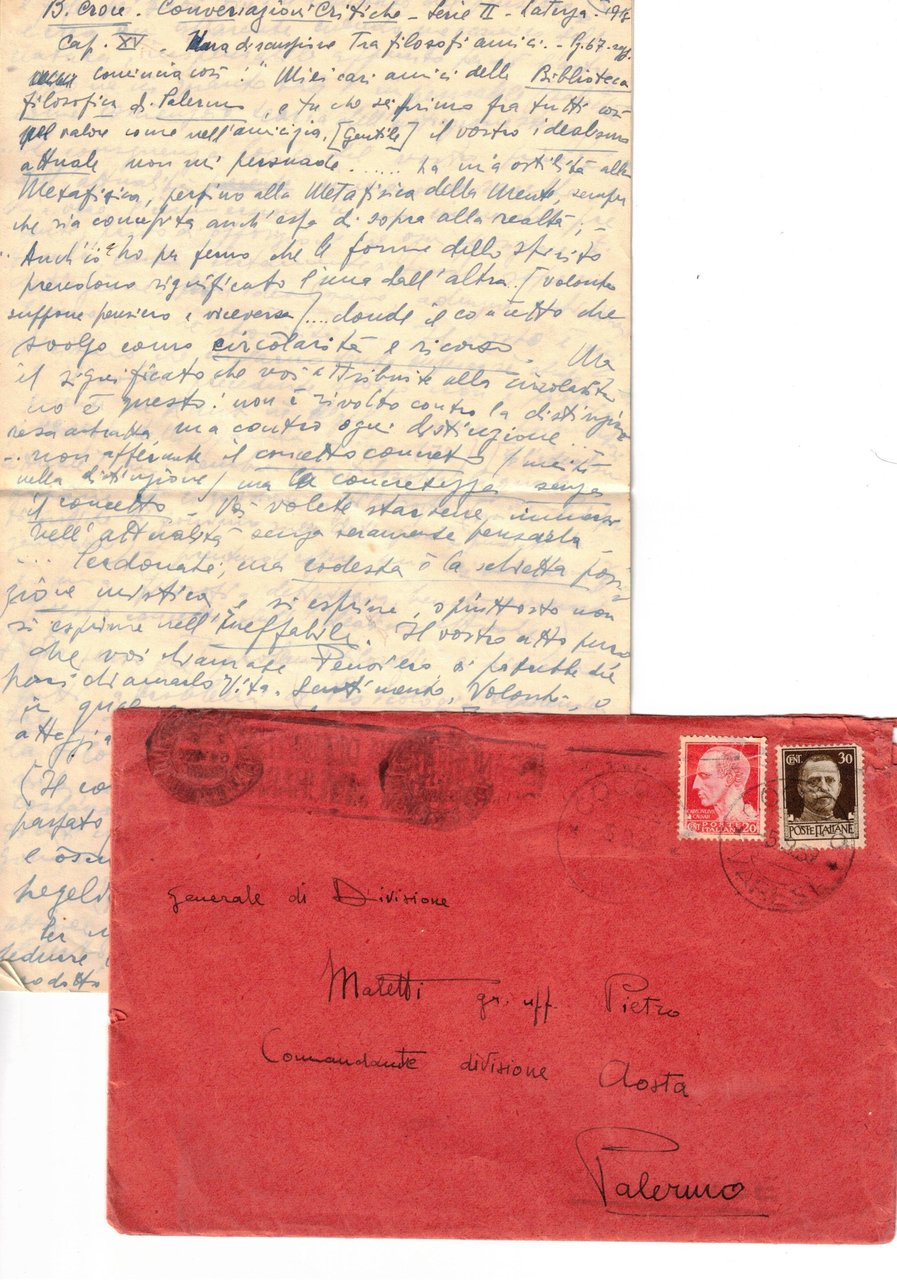 B. Croce. Conversazioni Critiche - Serie II - Laterza. 191
Cap. XV. - Una discussione tra filosofi amici. - Pg. 67.
comincia così: "Miei cari amici della Biblioteca
filosofica di Palermo, e tu che sei primo fra tutti così
pel valore come nell'amicizia, [Gentile] il vostro idealismo
attuale non mi persuade ...... La mia ostilità alla
Metafisica, perfino alla Metafisica della Mente, sempre
che sia concepita anch'essa di sopra alla realtà, -
.. Anch'io ho per fermo che le forme dello spirito
prendono significato l'una dall'altra. [volontà
suppone pensiero e viceversa] .... donde il concetto che
svolgo come circolarità e ricorso. Ma
il significato che voi attribuite alla circolarità
no è questo: non è rivolto contro la distinzione
resa astratta ma contro ogni distinzione ...
... non afferente il concetto concreto (unità
nella distinzione) ma la concretezza senza
il concetto - Voi volete starvene immersi
nell'attualità senza veramente pensarla
... Perdonate, ma codesta è la schietta posi-
zione mistica e si esprime, o piuttosto non
si esprime nell'Ineffabile. Il vostro atto puro
che voi chiamate Pensiero si potrebbe del
pari chiamarlo Vita, Sentimento, Volontà, o
in
atteggia
(Il co
passato
e
hegeli
Per
sedurre
prodotto
CENT. 20
POSTE
ITALIANE
CENT. 30
POSTE ITALIANE
Generale di Divisione
Maletti gr. uff. Pietro
Comandante divisione Aosta
Palermo